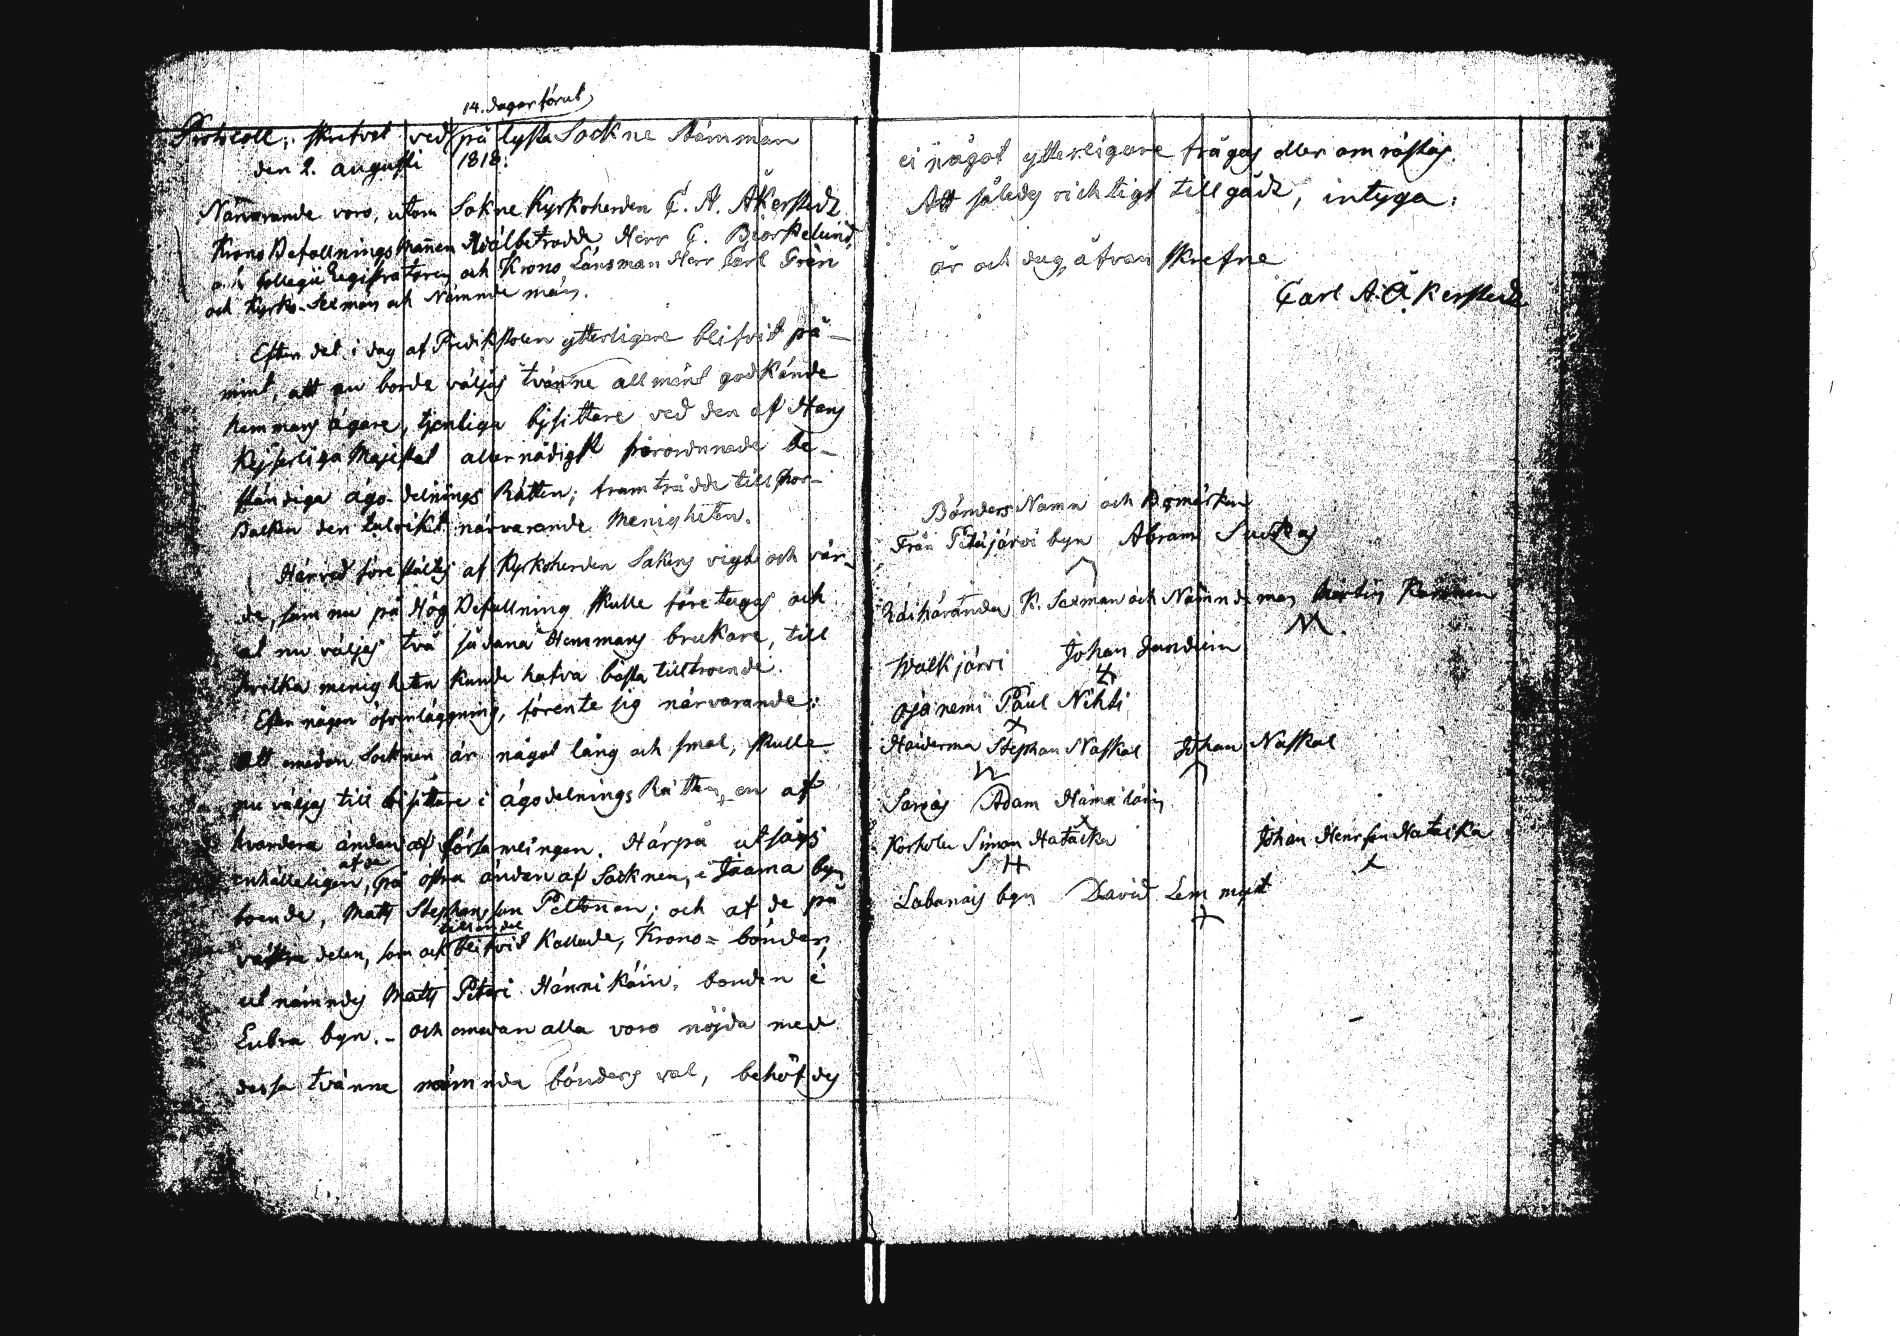 14. dagar förut
Protocoll; skrefvet ved pålyste Sockne stämman
den 2. augusti 1818.
Närvarande voro, utom Sokne Kyrkoherden C. A. Åkerstedt
Krons Befallnings Mannen Wälbetrodde Herr C. Björkelund,
Collegii Registratoren och Krono Länsman Herr Carl Grén
och Kyrko-Sexmän och Nämnde män.
Efter det i dag af Predikstolen ytterligare blifvit på-
mint, att nu borde väljas tvänne allmänt godkände
hemmans ägare, tjenliga bisittare ved den af Hans
Kejserliga Majestet allernådigst förordnade be-
ständiga ägo-delnings Rätten; framträdde till
den talrikt närvarande Menigheten.
Härved föreställtes af Kyrkoherden Sakens vigt och vär-
de, som nu på Hög Befallning skulle företagas och
at nu väljas två sådana Hemmans brukare, till
hvilka menigheten kunde hafva bästa tilltroende.
Efter någon öfverläggning, förente sig närvarande:
att emedan Socknen är något lång och smal, skulle
nu väljas till bisittare i ägodelnings Rätten, en af
hvardera ändan af församlingen. Härpå utsågs
af de
enhälleligen, på östra ändan af Socknen, i Jaama byn
boende, Mats Stephansson Peltonen; och af de på
västra delen, som ock blifvit kallade, Krono-bönder,
utnämndes Mats Petari Hännikäin, bonden i
Lubra byn. - och emedan alla voro nöjda med
dessa tvänne nämnda bönders val, behöfdes
ei något ytterligare frågas eller omröstas.
Att således richtigt tillgådt, intyga:
år och dag åfvan skrefne
Carl A. Åkerstedt
Bönders Namn och Bomärken
Från Pitkäjärvi byn Abram Suckas
Räihäranda K. Sexman och Nämndeman
M
Walkjärvi Johan
Ojanemi Paul Nihti
X
Haiderma Stephan Naskal Johan Naskal
Adam Hämäläin
X
Korhola Simon Hatacka Johan Henrsson Hatacka
S H
Labanais byn David